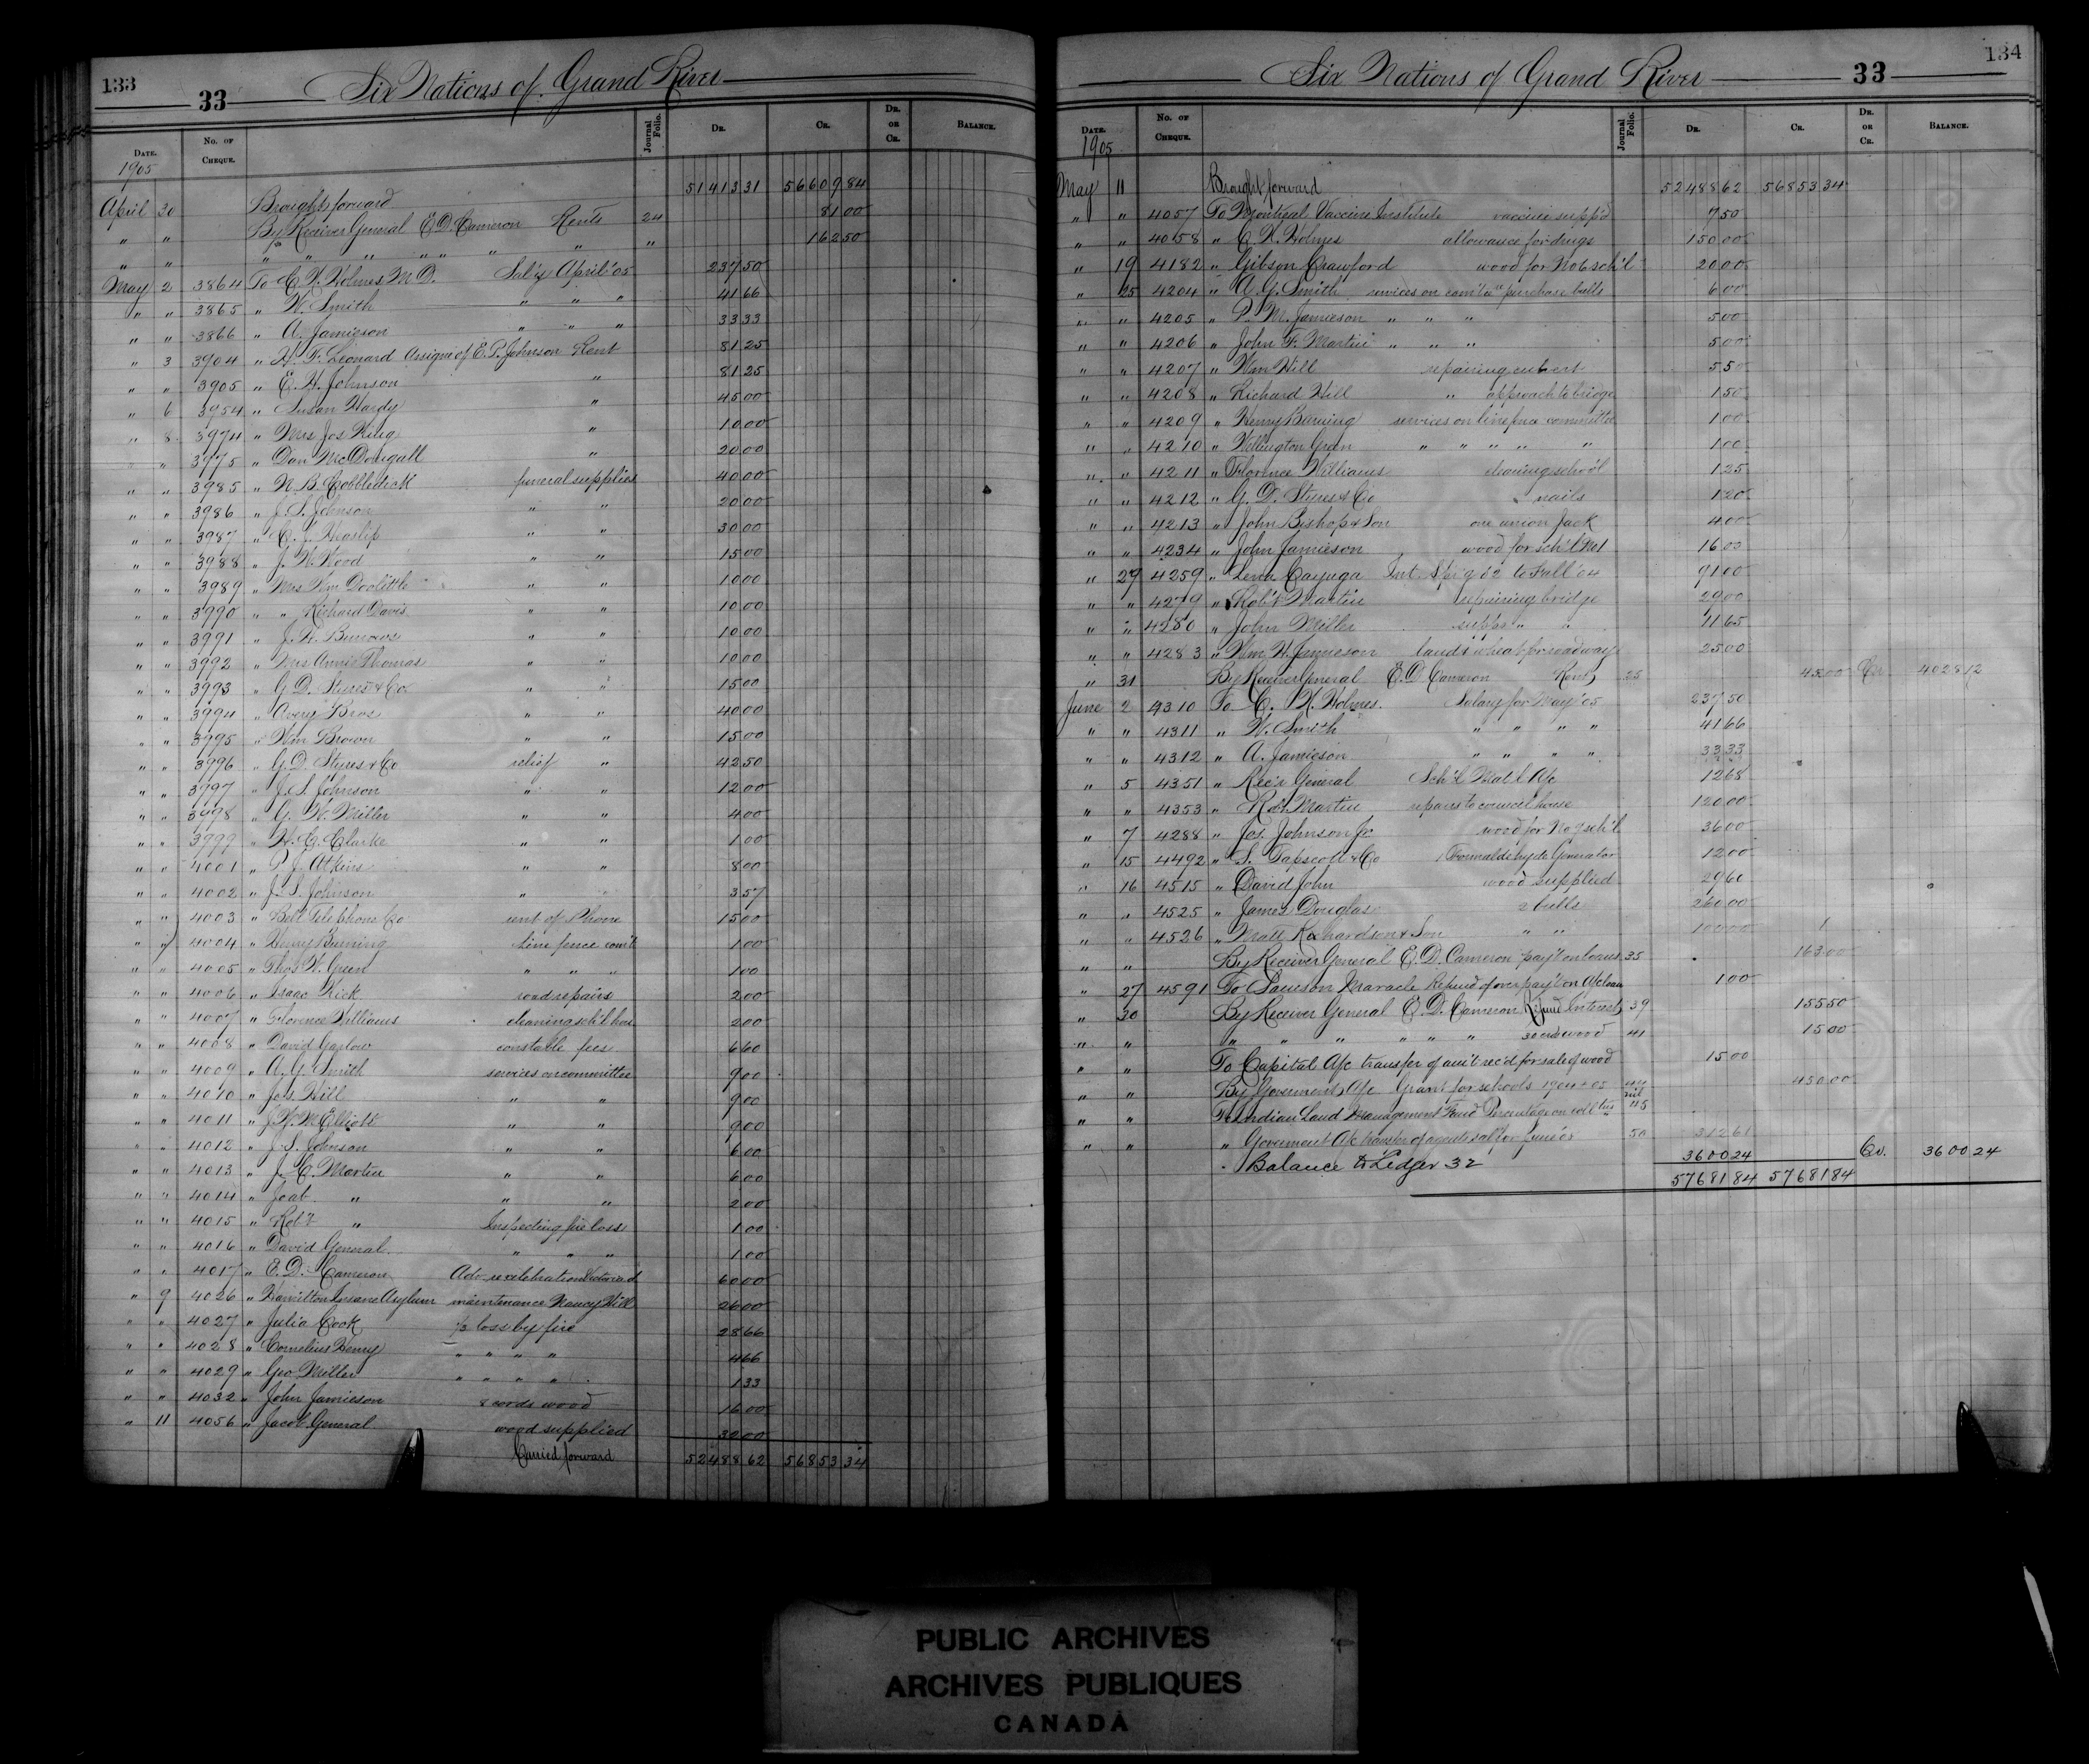 133
33 Six Nations of Grand River
DATE. No. OF CHEQUE. Journal Folio. DR. CR. DR. OR CR. BALANCE.
1905
April 30 Brought forward 51413 31 56609 84
" " By Receiver General E.D. Cameron Rents 24 81 00
" " " " " " " " " " 162 50
May 2 3864 To C. H. Holmes M.D. Sal'y April '05 237 50
" " 3865 " W. Smith " " " 41 66
" " 3866 " A. Jamieson " " " 33 33
" 3 3904 " H. F. Leonard Assignee of E.P. Johnson Rent 81 25
" " 3905 " E. H. Johnson " 81 25
" 6 3954 " Susan Hardy " 45 00
" 8 3974 " Mrs Jos " 10 00
" " 3975 " Dan McDougall " 20 00
" " 3985 " N. B. Cobbledick funeral supplies 40 00
" " 3986 " J. S. Johnson " " 20 00
" " 3987 " C. J. Haslip " " 30 00
" " 3988 " J. H. Wood " " 15 00
" " 3989 " Mrs Wm Doolittle " " 10 00
" " 3990 " " Richard Davis " " 10 00
" " 3991 " J. H. Burrows " " 10 00
" " 3992 " Mrs Annie Thomas " " 10 00
" " 3993 " G. D. Styres & Co. " " 15 00
" " 3994 " Avery Bros " " 40 00
" " 3995 " Wm Brown " " 15 00
" " 3996 " G. D. Styres & Co relief " 42 50
" " 3997 " J. S. Johnson " " 12 00
" " 3998 " G. W. Miller " " 4 00
" " 3999 " H. G. Clarke " " 1 00
" " 4001 " P. J. Atkins " " 8 00
" " 4002 " J. S. Johnson " " 3 57
" " 4003 " Bell Telephone Co rent of Phone 15 00
" " 4004 " Henry Burning Line fence com't 1 00
" " 4005 " Thos W. Green " " " 1 00
" " 4006 " Isaac Kick road repairs 2 00
" " 4007 " Florence Williams cleaning sch'l hse 2 00
" " 4008 " David Garlow constable fees 6 60
" " 4009 " A. G. Smith services on committee 9 00
" " 4010 " Jos. Hill " " 9 00
" " 4011 " J. W. M. Elliott " " 9 00
" " 4012 " J. S. Johnson " " 6 00
" " 4013 " J. C. Martin " " 6 00
" " 4014 " Joab " " " 2 00
" " 4015 " Rob't " Inspecting fire loss 1 00
" " 4016 " David General " " " 1 00
" " 4017 " E. D. Cameron Adv re celebration Victoria d 60 00
" 9 4026 " Hamilton Insane Asylum maintenance Nancy Hill 26 00
" " 4027 " Julia Cook 1/3 loss by fire 28 66
" " 4028 " Cornelius Henry " " " " 4 66
" " 4029 " Geo. Miller " " " " 1 33
" " 4032 " John Jamieson 8 cords wood 16 00
" 11 4056 " Jacob General wood supplied 32 00
Carried forward 52488 62 56853 34
134
Six Nations of Grand River 33
DATE. No. OF CHEQUE. Journal Folio. DR. CR. DR. OR CR. BALANCE.
1905
May 11 Brought forward 52488 62 56853 34
" " 4057 To Montreal Vaccine Institute vaccine supp'd 7 50
" " 4058 " C. H. Holmes allowance for drugs 150 00
" 19 4182 " Gibson Crawford wood for No 6 sch'l 20 00
" 25 4204 " A. G. Smith services on com'tee purchase bells 6 00
" " 4205 " P. M. Jamieson " " " 5 00
" " 4206 " John F. Martin " " " 5 00
" " 4207 " Wm Hill repairing culvert 5 50
" " 4208 " Richard Hill " approach to bridge 1 50
" " 4209 " Henry Burning services on line fence committee 1 00
" " 4210 " Wellington Green " " " " " 1 00
" " 4211 " Florence Williams cleaning school 1 25
" " 4212 " G. D. Styres & Co nails 1 20
" " 4213 " John Bishop & Son one union Jack 4 00
" " 4234 " John Jamieson wood for sch'l No 1 16 00
" 29 4259 " Lena Cayuga Int. Sp'g 02 to Fall '04 91 00
" " 4279 " Rob't Martin repairing bridge 29 00
" " 4280 " John Miller supps " " 11 65
" " 4283 " Wm H. Jamieson land & wheat for roadway 25 00
" 31 By Receiver General E. D. Cameron Rents 25 45 00 Cr 4028 12
June 2 4310 To C. H. Holmes. Salary for May '05 237 50
" " 4311 " W. Smith " " " " 41 66
" " 4312 " A. Jamieson " " " " 33 33
" 5 4351 " Rec'r General Sch'l Mat'l A/c 12 68
" " 4353 " Robt Martin repairs to council house 120 00
" 7 4288 " Jos. Johnson Jr wood for No 9 sch'l 36 00
" 15 4492 " S. Tapscott & Co 1 Formaldehyde Generator 12 00
" 16 4515 " David John wood supplied 29 60
" " 4525 " James Douglas 2 bells 260 00
" " 4526 " Matt Richardson & Son " " 100 00
" " By Receiver General E. D. Cameron pay't on loans 35 163 00
" 27 4591 To Lawson Maracle Refund of over pay't on A/c loan 1 00
" 30 By Receiver General E. D. Cameron Interest 39 155 50
" " " " " " " " 30 cds wood 41 15 00
" " To Capital A/c transfer of am't rec'd for sale of wood 15 00
" " By Government A/c Grant for schools 1904-05 44 450 00
" " To Indian Land Management Fund Percentage on coll'tns nil 45
" " " Government A/c transfer of 50 312 61
" Balance to Ledger 32 3600 24 Cr. 3600 24
57681 84 57681 84
PUBLIC ARCHIVES
ARCHIVES PUBLIQUES
CANADA